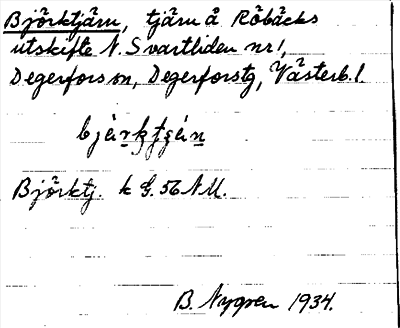 Björktjärn, tjärn å Röbäcks
utskifte N. Svartliden nr 1,
Degerfors sn, Degerforstg, Västerb. l.
Björktj. k G. 56 NM.
B. Nygren 1934.